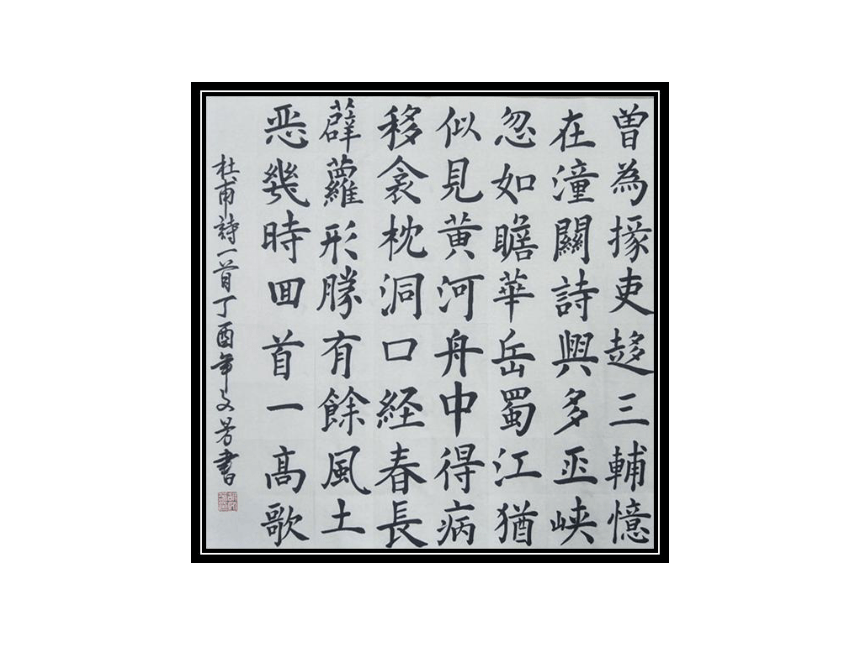 曾為掾吏趍三輔憶
在潼關詩興多巫峡
忽如瞻華岳蜀江猶
似見黄河舟中得病
移衾枕洞口経春長
薜蘿形勝有餘風土
恶幾時回首一高歌
杜甫詩一首丁酉年文芳書